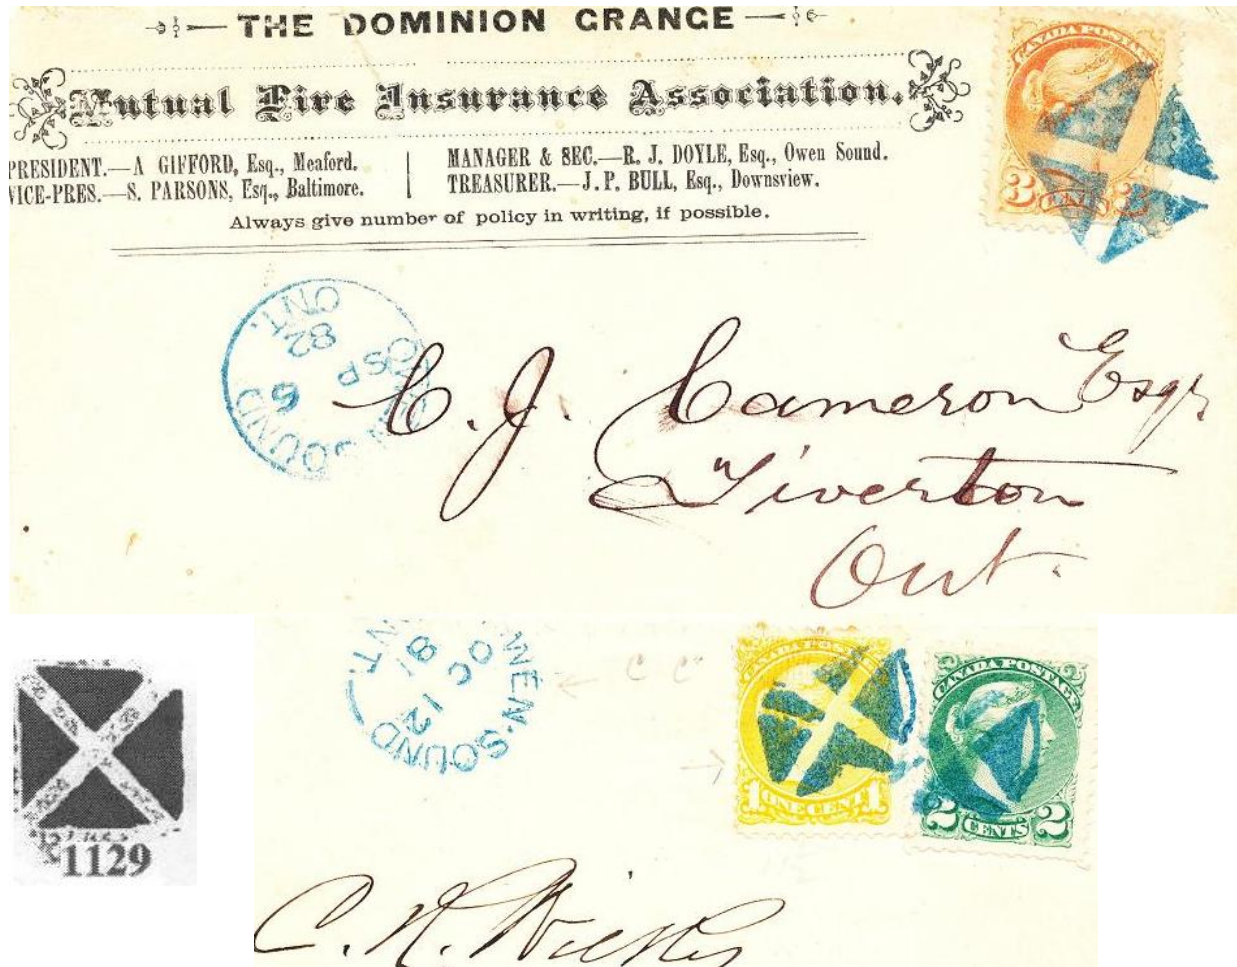 THE DOMINION GRANGE
Mutual Fire Insurance Association.
PRESIDENT.—A GIFFORD, Esq., Meaford.
VICE-PRES.—S. PARSONS, Esq., Baltimore.
MANAGER & SEC.—R. J. DOYLE, Esq., Owen Sound.
TREASURER.—J. P. BULL, Esq., Downsview.
Always give number of policy in writing, if possible.
CANADA POSTAGE
3 CENTS 3
SOUND
6
SP
82
ONT.
C. J. Cameron Esqr
Tiverton
Ont.
WEN·SOUND
12
OC
81
NT.
C C
CANADA POSTAGE
1 ONE CENT 1
CANADA POSTAGE
2 CENTS 2
1129
C. N.